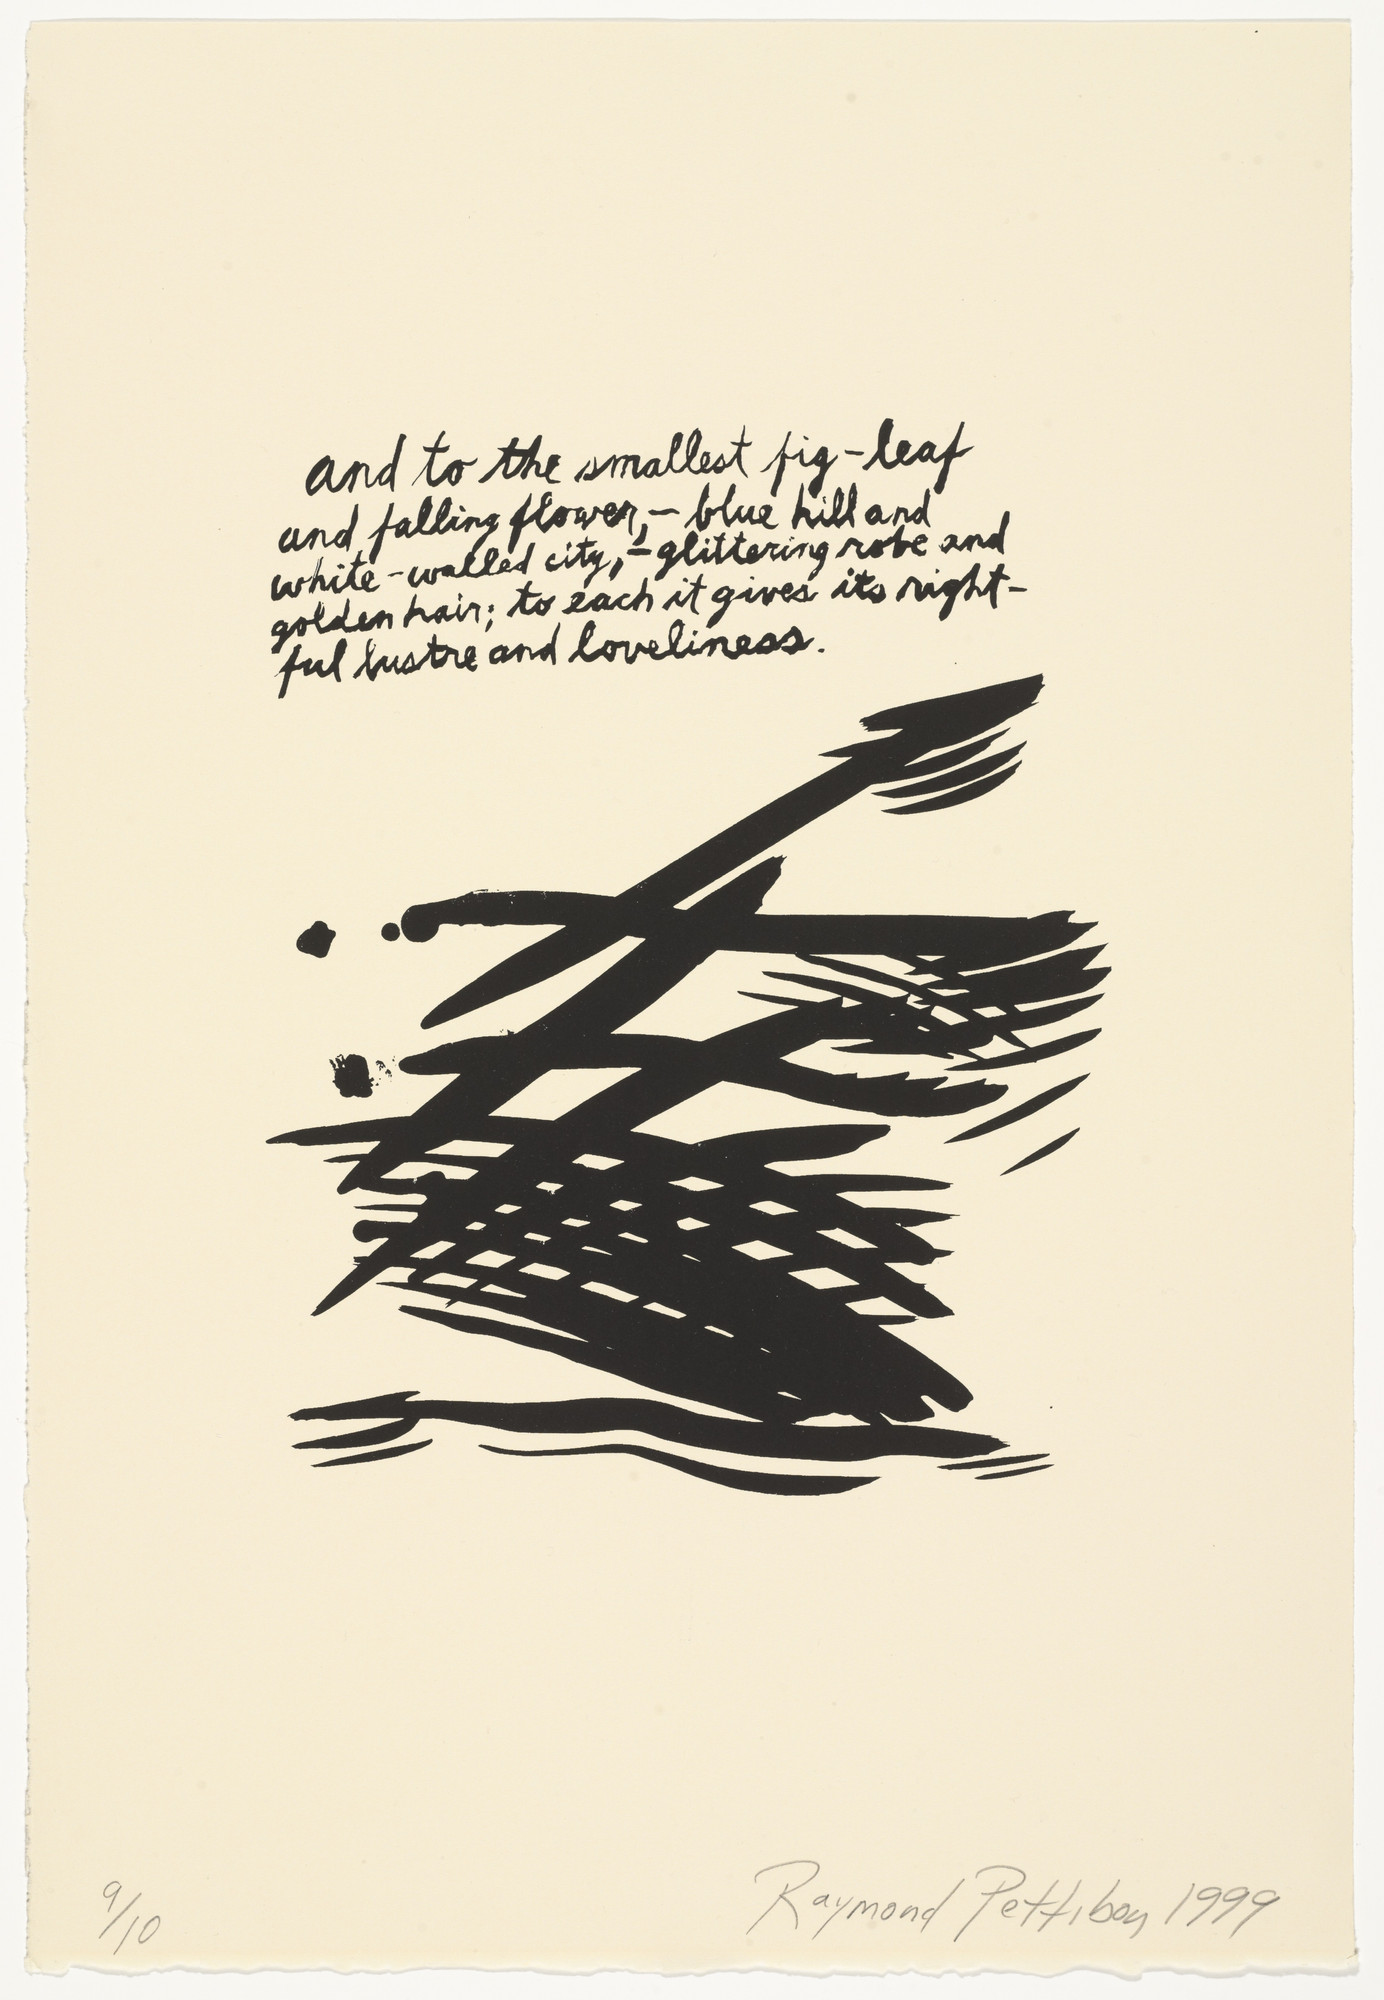 and to the smallest fig-leaf
and falling flower,— blue hill and
white-walled city,—glittering robe and
golden hair; to each it gives its right-
ful lustre and loveliness.
9/10
Raymond Pettibon 1999